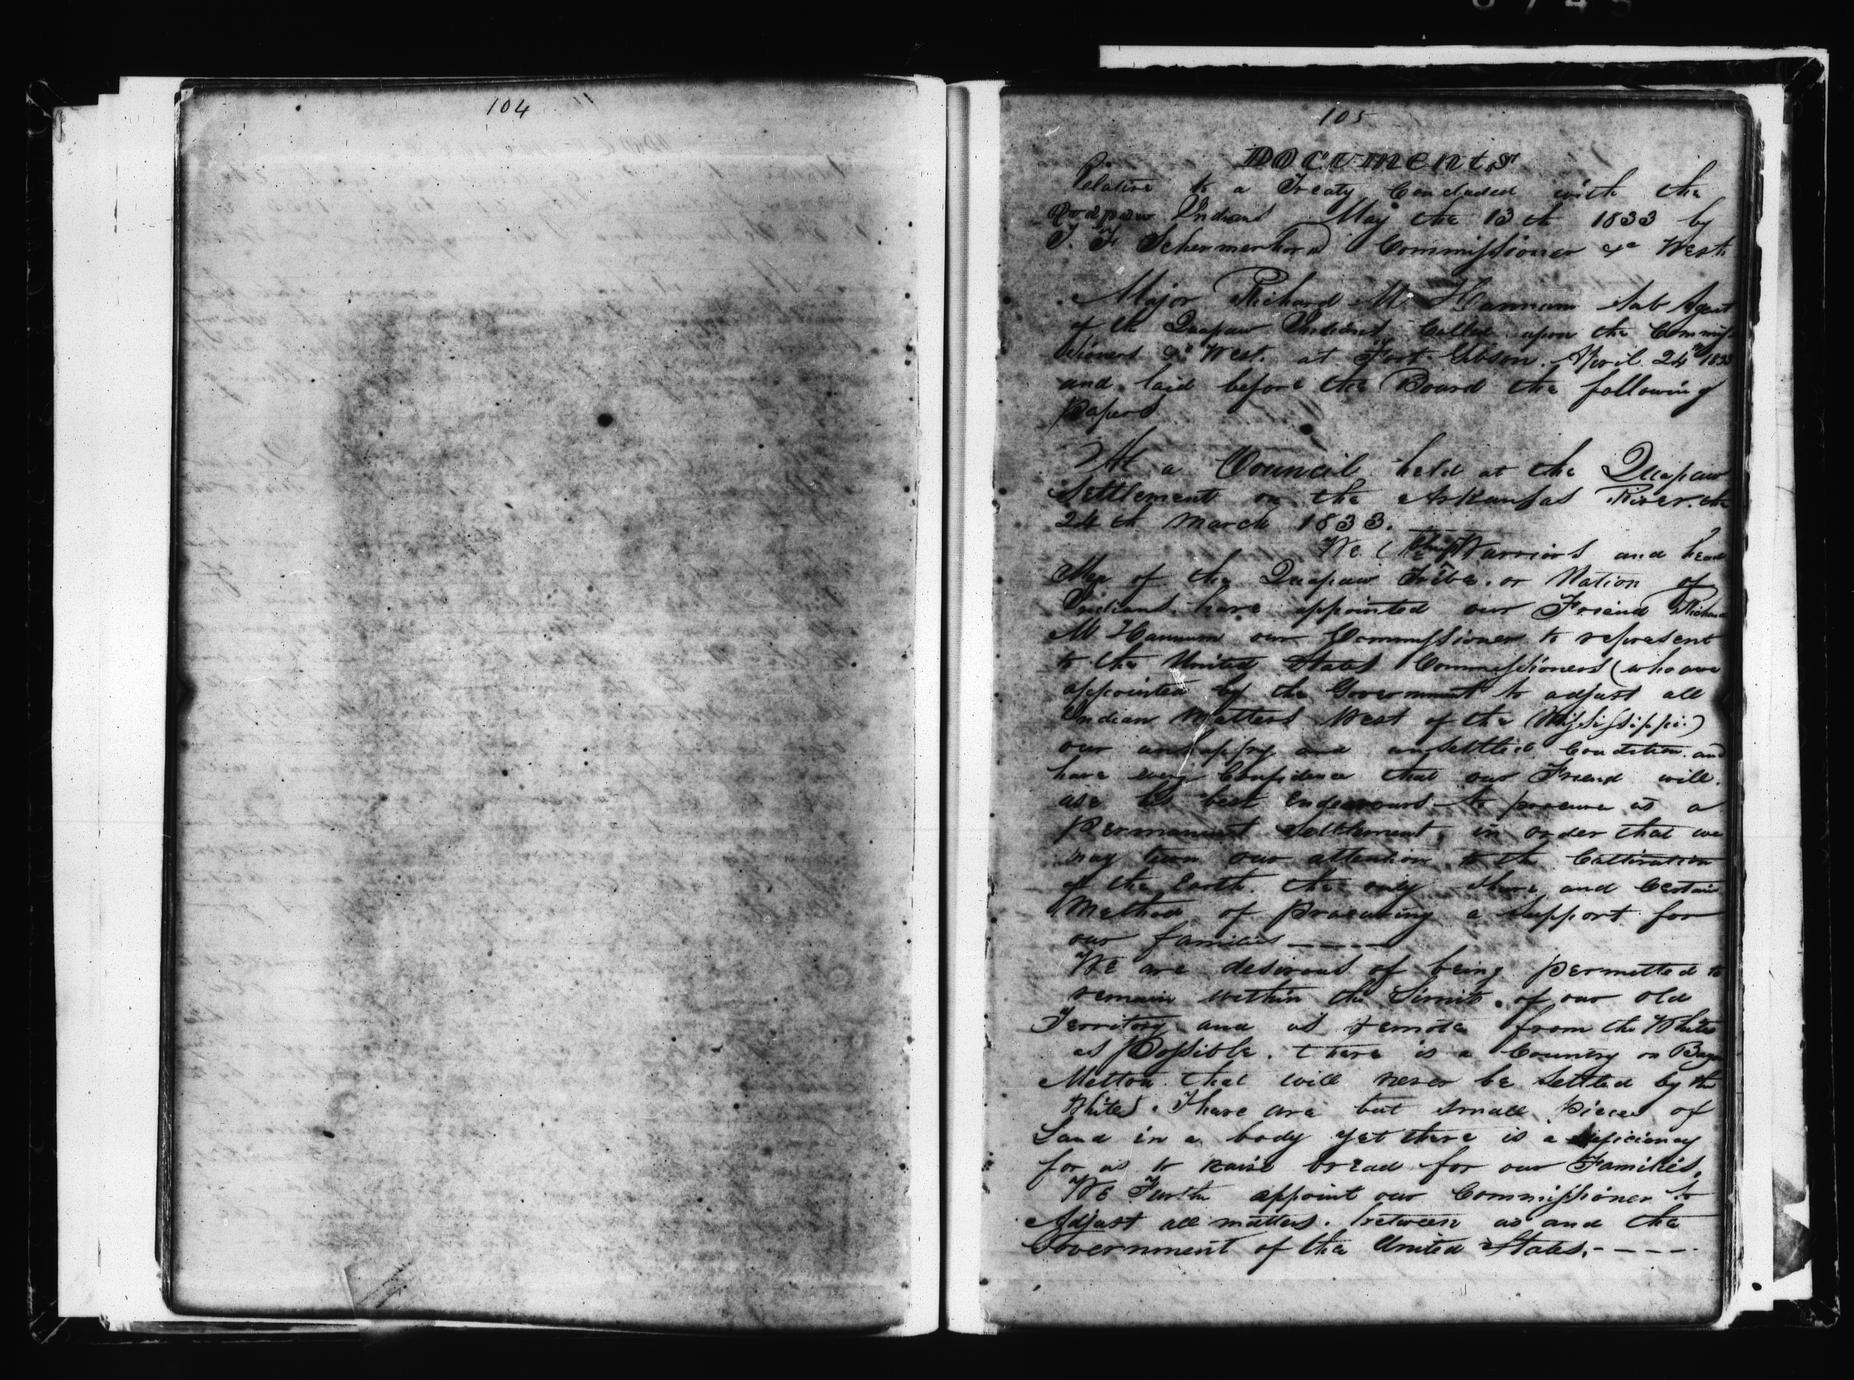 104
105
DOCUMENTS
Relative to a Treaty Concluded with the
Indians May the 13th 1833 by
J. F. Schermerhorn Commissioner &c West
Major Richard M. Hannum Sub Agent
of the Quapaw Indians Called upon the Commis
sioners &c West. at Fort Gibson. April 24th 1833
and laid before the Board the following
Papers
At a Council held at the Quapaw
Settlement on the Arkansas River. the
24th March 1833.
We (the Chiefs Warriors and head
Men of the Quapaw Tribe. or Nation of
Indians have appointed our Friend Richard
M Hannum our Commissioner to represent
to the United States Commissioners (who are
appointed by the Government to adjust all
Indian Matters West of the Mississippi)
our unhappy and unsettled Condition and
have every Confidence that our Friend will
use his best Endeavours to procure us a
Permanent Settlement, in order that we
may turn our attention to the Cultivation
of the Earth. the only and Certain
Method of procuring a Support for
our families ————
We are desirous of being permitted to
remain within the Limits of our old
Territory and as remote from the Whites
as Possible. there is a Country on
that will never be settled by the
Whites. There are but small pieces of
Land in a body yet there is a
for us to raise bread for our Families.
We Furth appoint our Commissioner to
Adjust all matters. between us and the
Government of the United States. - - - -